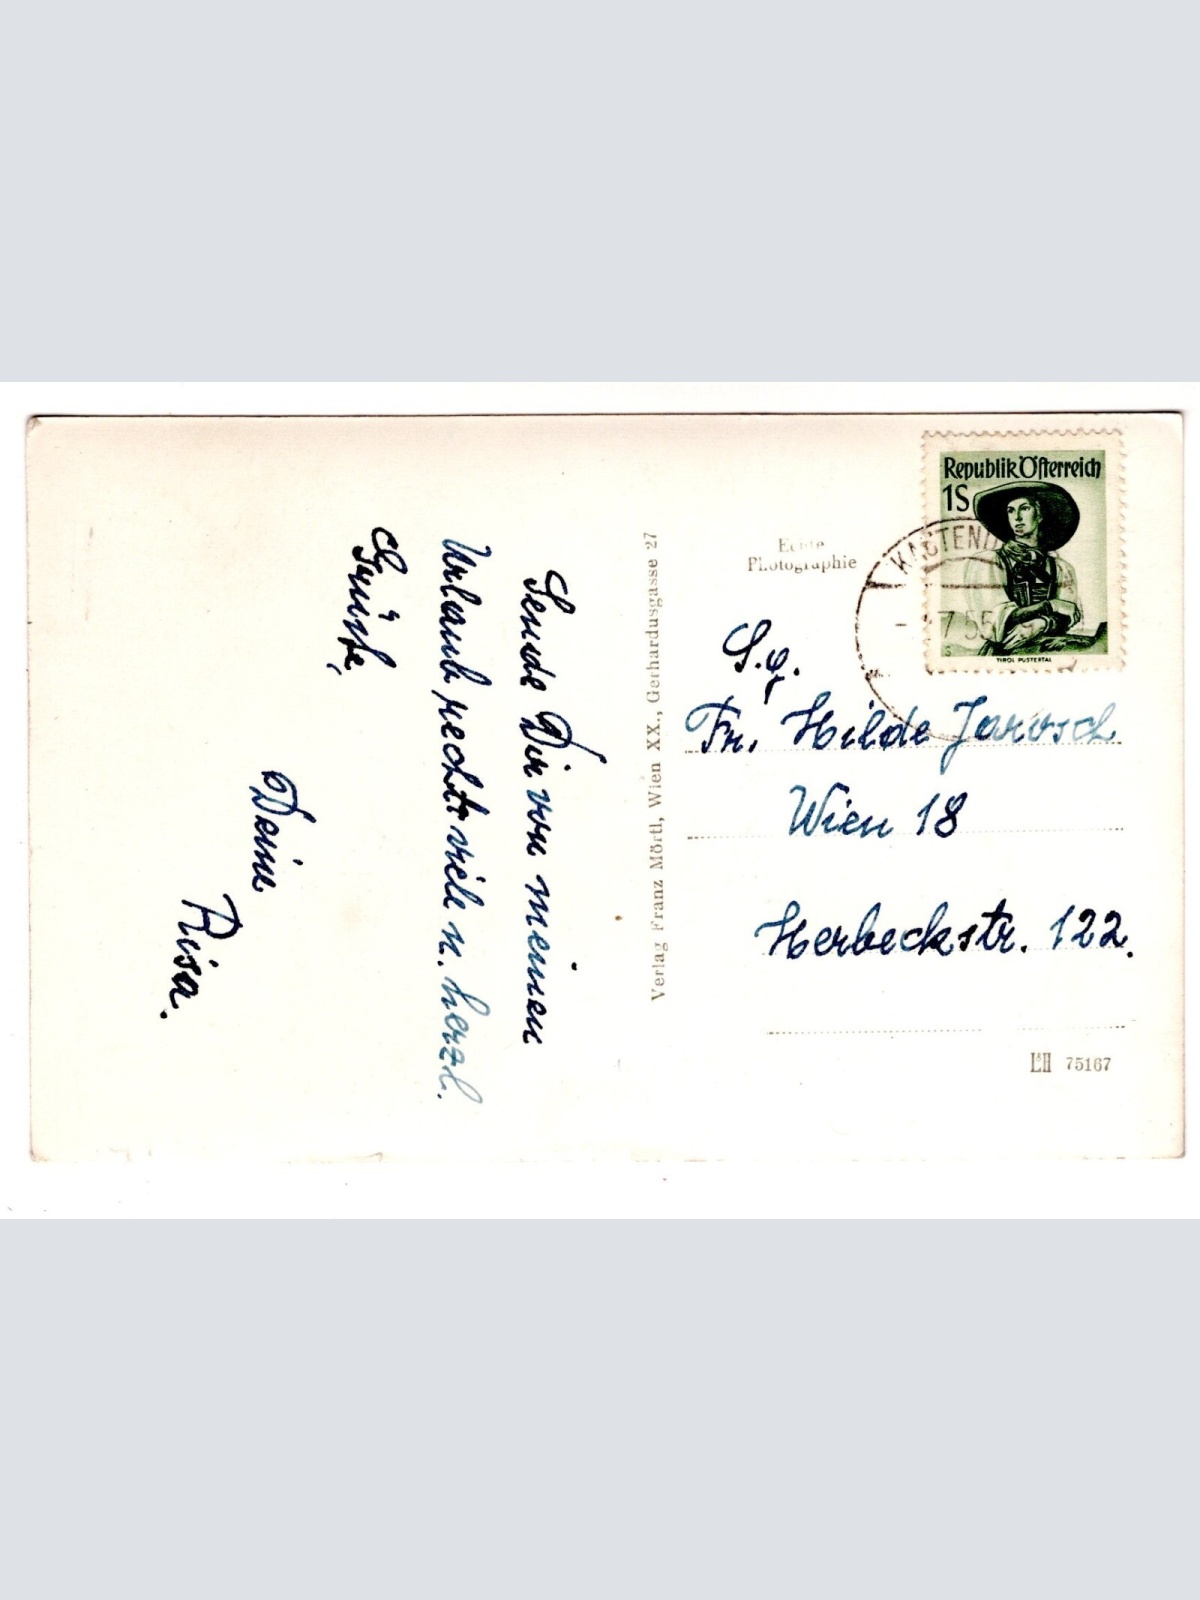 Sende Dir von meinen
Urlaub recht viele u. herzl.
Grüße,
Deine
Risa.
Verlag Franz Mörtl, Wien XX., Gerhardusgasse 27
Echte
Photographie
Republik Österreich
1S
TIROL PUSTERTAL
7 55
S. g.
Fr. Hilde Jarosch
Wien 18
Herbeckstr. 122.
L&H 75167